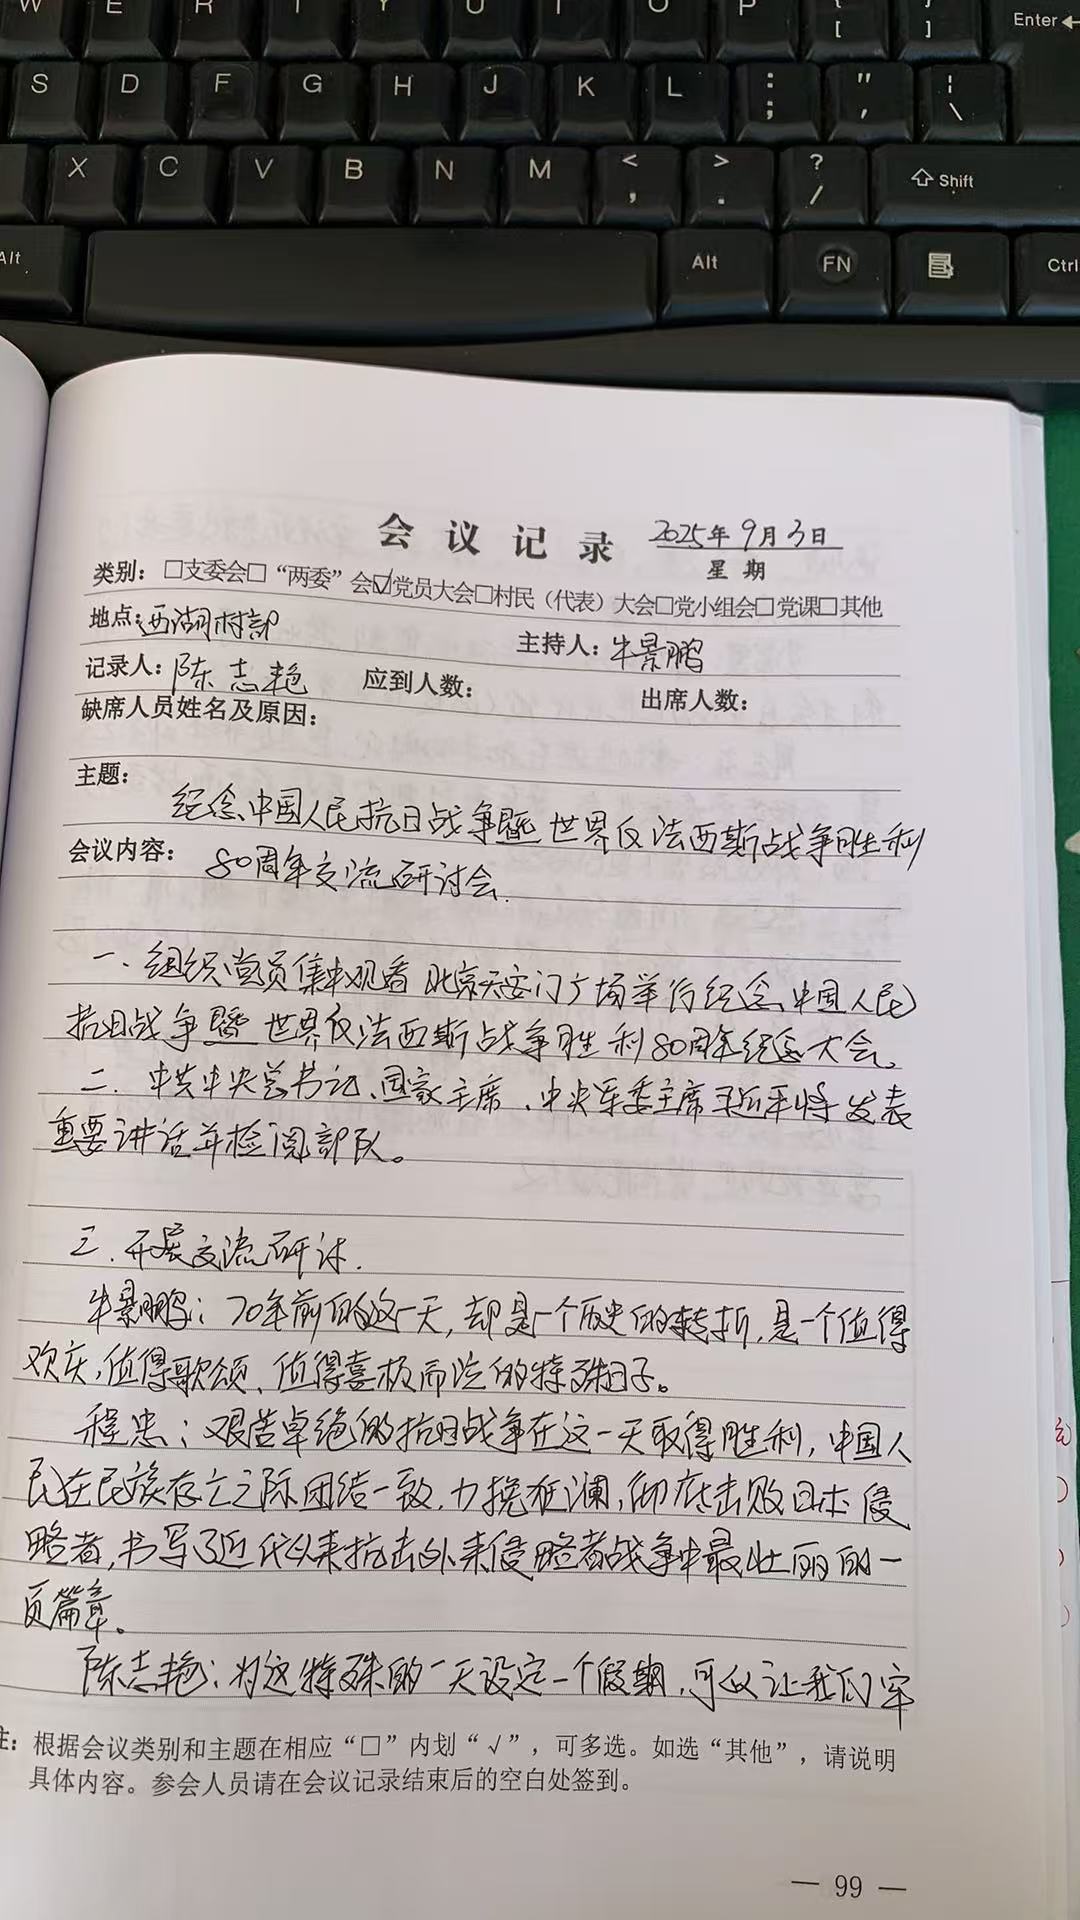 W E R T Y U I O P { [ } ] Enter
S D F G H J K L : ; " , | \
X C V B N M < , > . ? / Shift
Alt Alt FN Ctrl
会议记录 2025年9月3日
星期
类别：□支委会□“两委”会☑党员大会□村民（代表）大会□党小组会□党课□其他
地点：西湖村部 主持人：牛景鹏
记录人：陈志艳 应到人数： 出席人数：
缺席人员姓名及原因：
主题：
纪念中国人民抗日战争暨世界反法西斯战争胜利
会议内容： 80周年交流研讨会.
一、组织党员集中观看北京天安门广场举行纪念中国人民
抗日战争暨世界反法西斯战争胜利80周年纪念大会。
二、中共中央总书记、国家主席、中央军委主席习近平将发表
重要讲话并检阅部队。
三、开展交流研讨.
牛景鹏：70年前的这一天，却是一个历史的转折，是一个值得
欢庆，值得歌颂、值得喜极而泣的特殊日子。
程忠：艰苦卓绝的抗日战争在这一天取得胜利，中国人
民在民族存亡之际团结一致，力挽狂澜，彻底击败日本侵
略者，书写了近代以来抗击外来侵略者战争中最壮丽的一
页篇章。
陈志艳：为这特殊的一天设定一个假期，可以让我们牢
注：根据会议类别和主题在相应“□”内划“√”，可多选。如选“其他”，请说明
具体内容。参会人员请在会议记录结束后的空白处签到。
— 99 —